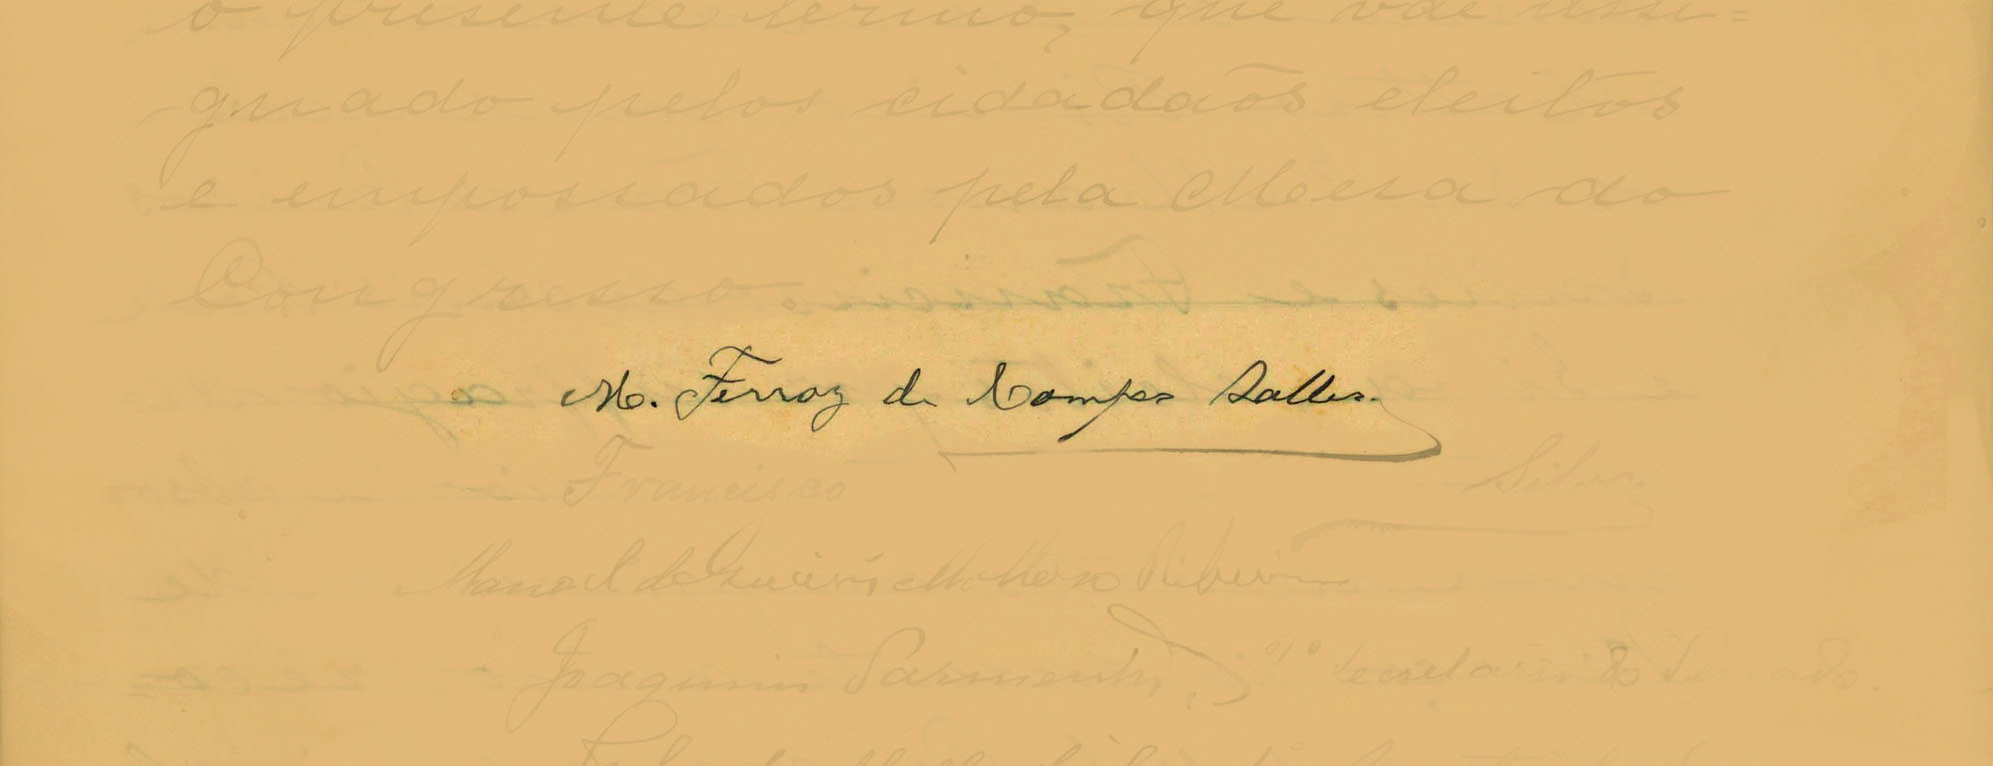 o presente termo, que vae assi=
gnado pelos cidadaõs eleitos
e empossados pela Mesa do
Congresso.
M. Ferraz de Campos Salles.
Francisco Silva
Manoel de Queirós Mattoso Ribeiro
Joaquim Sarmento, 1º Secretario do Senado